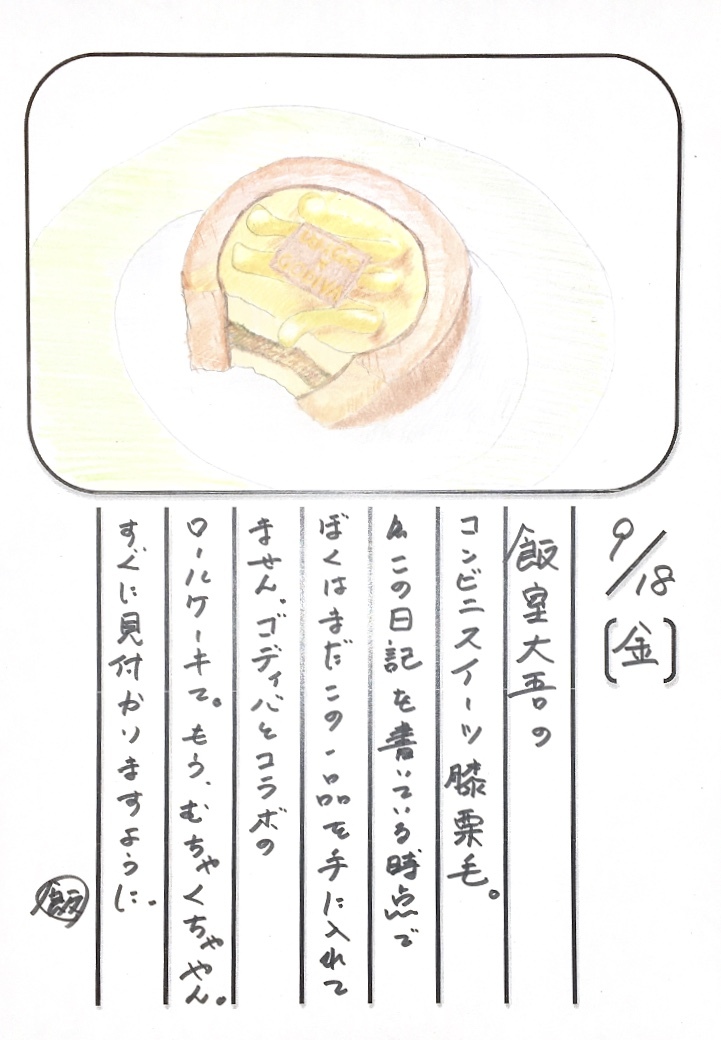 GODIVA
9/18 [金]
飯室大吾の
コンビニスイーツ膝栗毛。
この日記を書いている時点で
ぼくはまだこの一品を手に入れて
ません。ゴディバとコラボの
ロールケーキて。もう、むちゃくちゃやん。
すぐに見付かりますように。
飯